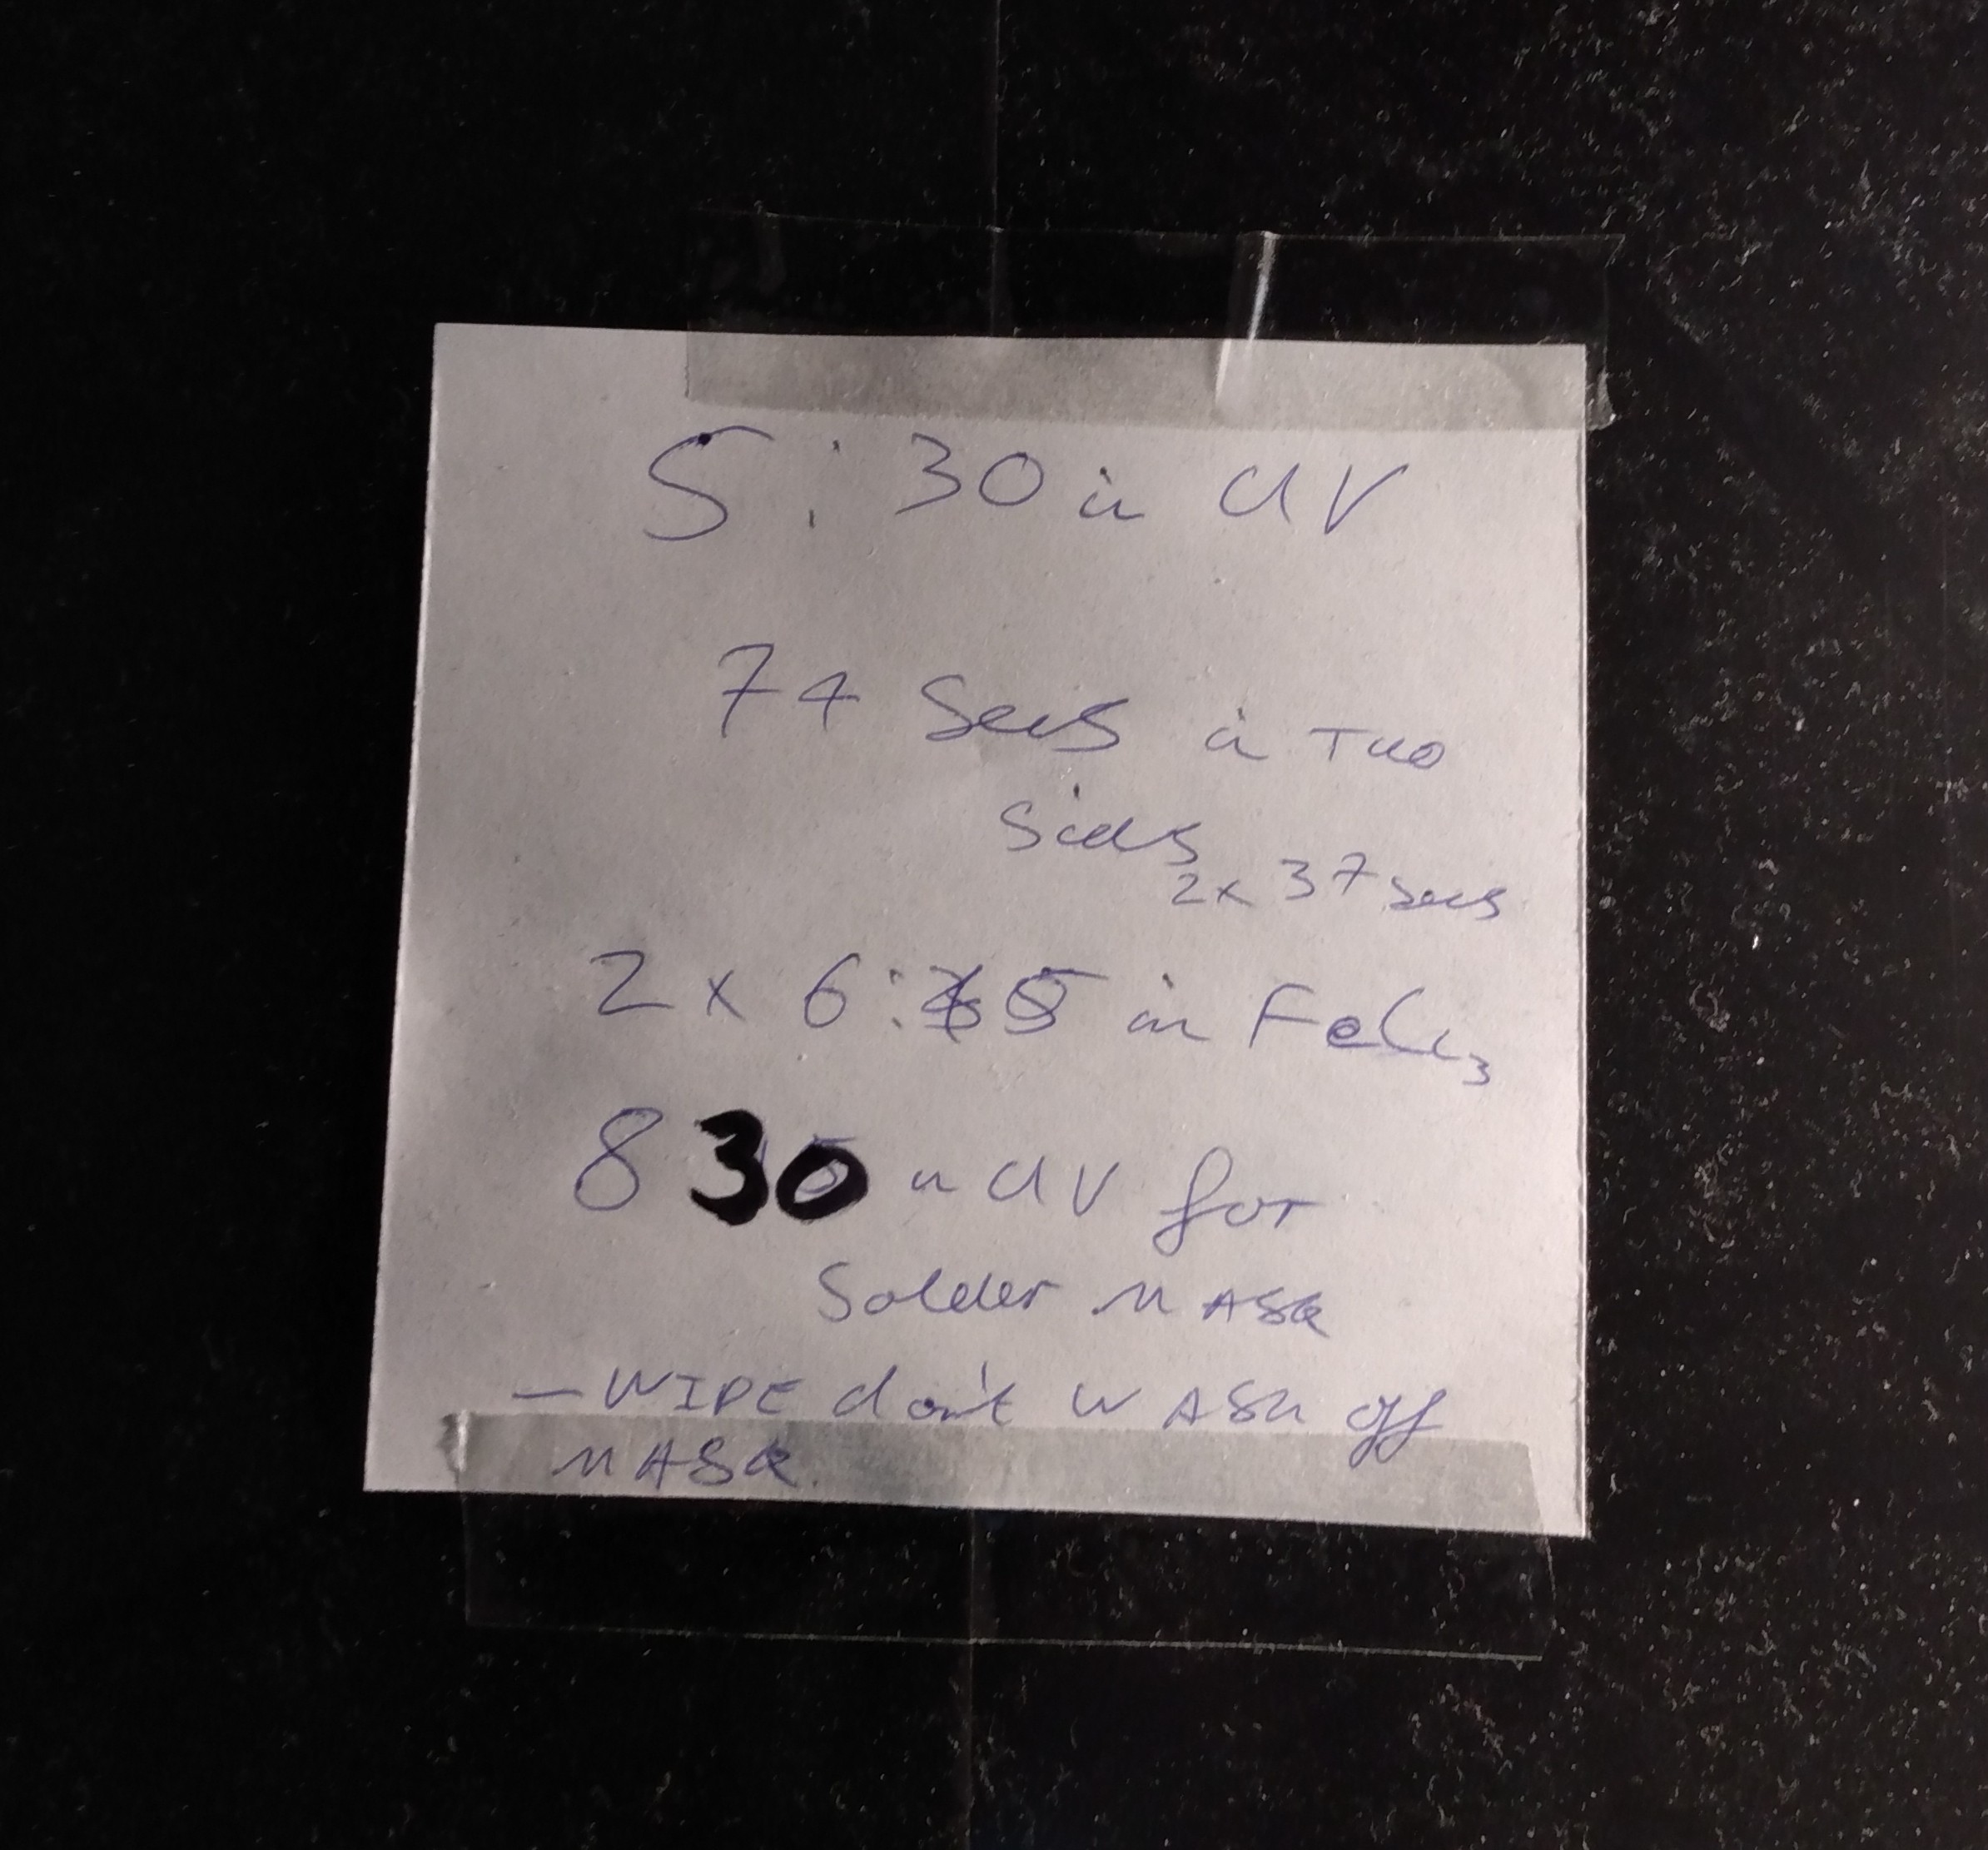 5:30 in UV
74 Secs in TWO
Sides
2x 37 secs
2 x 6: in FeCl3
8 30 in UV for
Solder MASK
— WIPE don't WASH off
MASK.